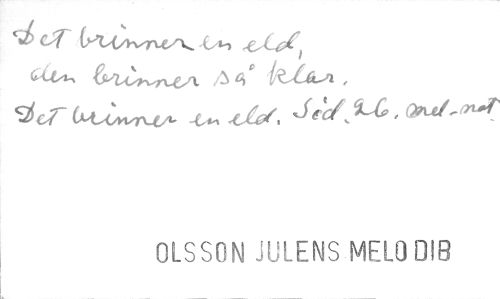 Det brinner en eld,
den brinner så klar.
Det brinner en eld. Sid. 26. mel-not.
OLSSON JULENS MELODIB